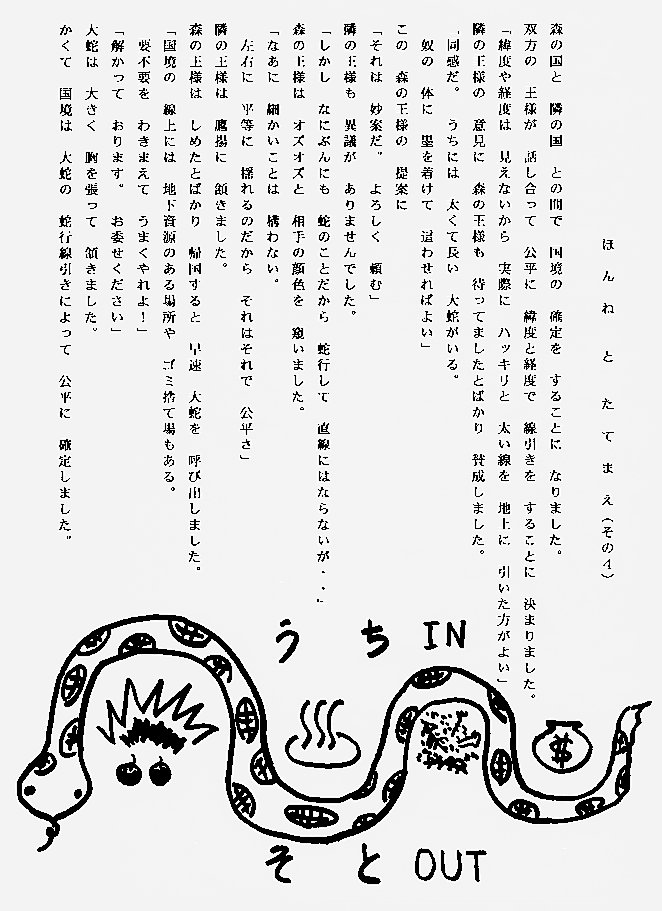 ほんねとたてまえ(その4)
森の国と 隣の国 との間で 国境の 確定を することに なりました。
双方の 王様が 話し合って 公平に 緯度と経度で 線引きを することに 決まりました。
「緯度や経度は 見えないから 実際に ハッキリと 太い線を 地上に 引いた方がよい」
隣の王様の 意見に 森の王様も 待ってましたとばかり 賛成しました。
「同感だ。 うちには 太くて長い 大蛇がいる。
奴の 体に 墨を着けて 這わせればよい」
この 森の王様の 提案に
「それは 妙案だ。 よろしく 頼む」
隣の王様も 異議が ありませんでした。
「しかし なにぶんにも 蛇のことだから 蛇行して 直線にはならないが・・」
森の王様は オズオズと 相手の顔色を 窺いました。
「なあに 細かいことは 構わない。
左右に 平等に 揺れるのだから それはそれで 公平さ」
隣の王様は 鷹揚に 頷きました。
森の王様は しめたとばかり 帰国すると 早速 大蛇を 呼び出しました。
「国境の 線上には 地下資源のある場所や ゴミ捨て場もある。
要不要を わきまえて うまくやれよ!」
「解かって おります。 お委せください」
大蛇は 大きく 胸を張って 頷きました。
かくて 国境は 大蛇の 蛇行線引きによって 公平に 確定しました。
うち IN
$
そと OUT